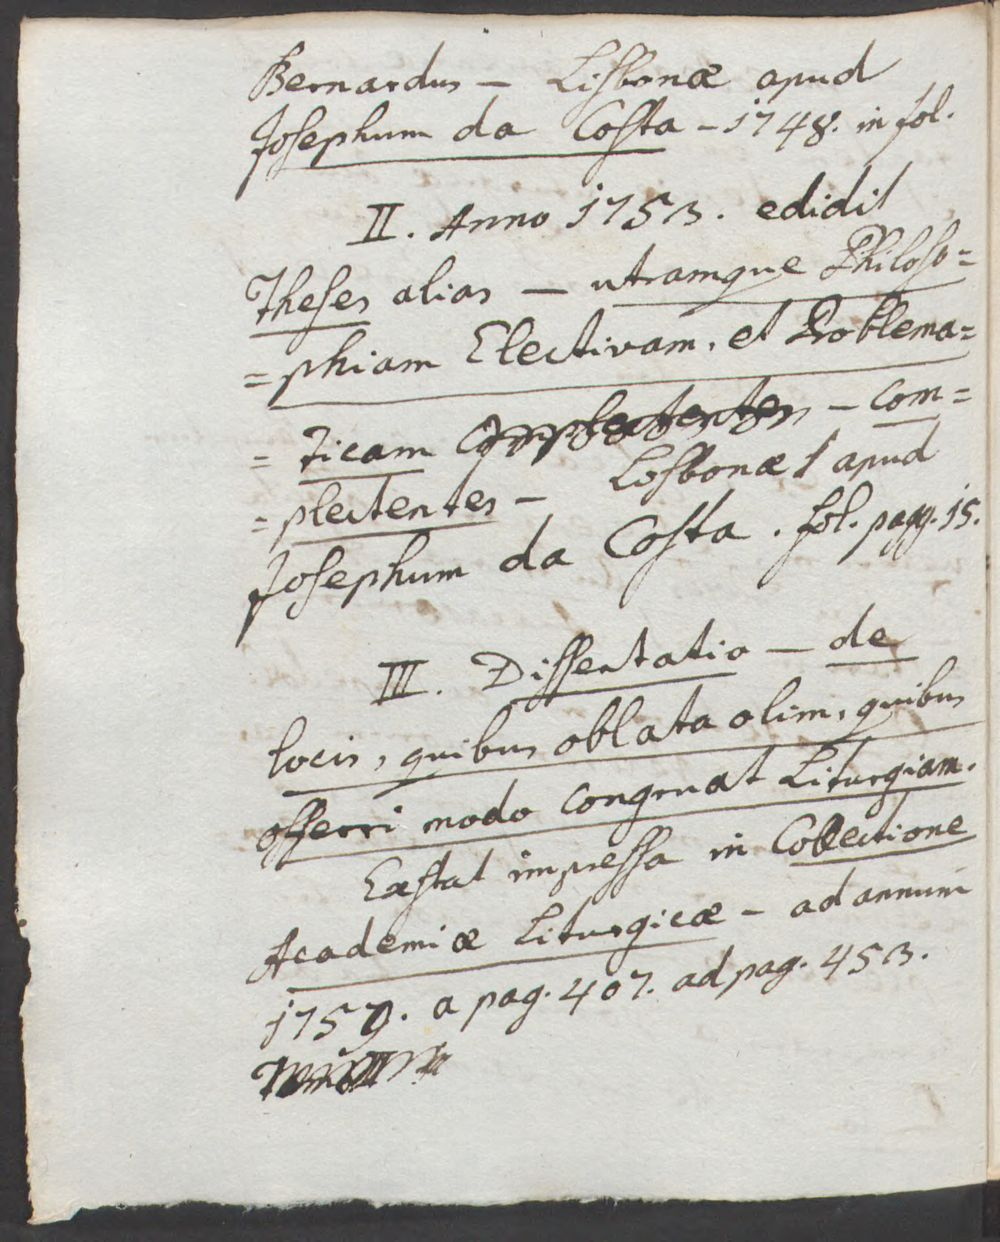 Bernardus — Lisbonæ apud
Josephum da Costa – 1748. in fol.
II. Anno 1753. edidit
Theses alias — utramque Philoso=
= phiam Electivam, et Problema=
= ticam Complectentes – com=
= plectentes – Lisbonæ apud
Josephum da Costa. fol. pagg. 15.
III. Dissertatio — de
locis, quibus oblata olim, quibus
offerri modo congruat Liturgiam.
Exstat impressa in Collectione
Academiæ Liturgicæ – ad annum
1759. a pag. 407. ad pag. 453.